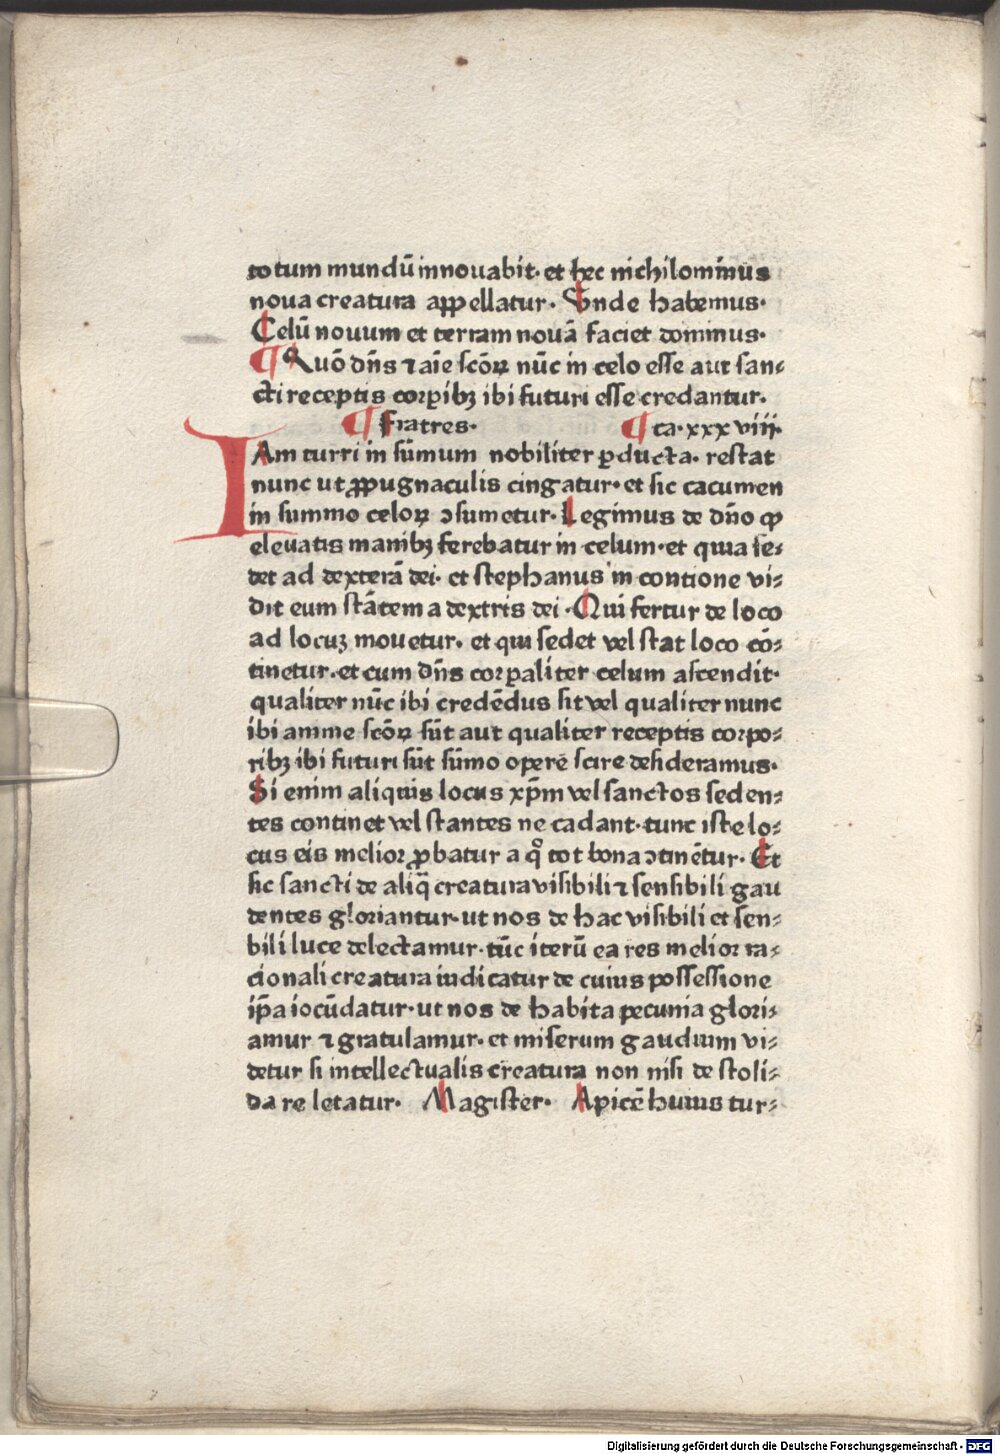 totum mundū innouabit· et hec nichilominus
noua creatura appellatur· Vnde habemus·
Celū nouum et terram nouā faciet dominus·
¶ Quō dn̄s ⁊ aīe scōꝝ nūc in celo esse aut san⸗
cti receptis corꝑibꝫ ibi futuri esse credantur.
¶ Fratres· ¶ ca·xxxviii·
IAm turri in sūmum nobiliter ꝑducta· restat
nunc ut ꝓpugnaculis cingatur· et sic cacumen
in summo celoꝝ ↄsumetur· Legimus de dn̄o ꝙ
eleuatis manibꝫ ferebatur in celum· et quia se⸗
det ad dexterā dei· et stephanus in contione vi⸗
dit eum stātem a dextris dei· Qui fertur de loco
ad locuꝫ mouetur· et qui sedet vel stat loco cō⸗
tinetur· et cum dn̄s corꝑaliter celum ascendit·
qualiter nūc ibi credēdus sit vel qualiter nunc
ibi anime scōꝝ sūt aut qualiter receptis corpo⸗
ribꝫ ibi futuri sūt sūmo opere scire desideramus·
Si enim aliquis locus xp̄m vel sanctos seden⸗
tes continet vel stantes ne cadant· tunc iste lo⸗
cus eis melior ꝓbatur a q̊ tot bona ↄtinētur· Et
sic sancti de aliq̄ creatura visibili ⁊ sensibili gau
dentes gloriantur· ut nos de hac visibili et sen⸗
bili luce delectamur· tūc iterū ea res melior ra⸗
cionali creatura iudicatur de cuius possessione
ip̄a iocūdatur· ut nos de habita pecunia glori⸗
amur ⁊ gratulamur· et miserum gaudium vi⸗
detur si intellectualis creatura non nisi de stoli⸗
da re letatur· Magister· Apicē huius tur⸗
Digitalisierung gefördert durch die Deutsche Forschungsgemeinschaft - DFG